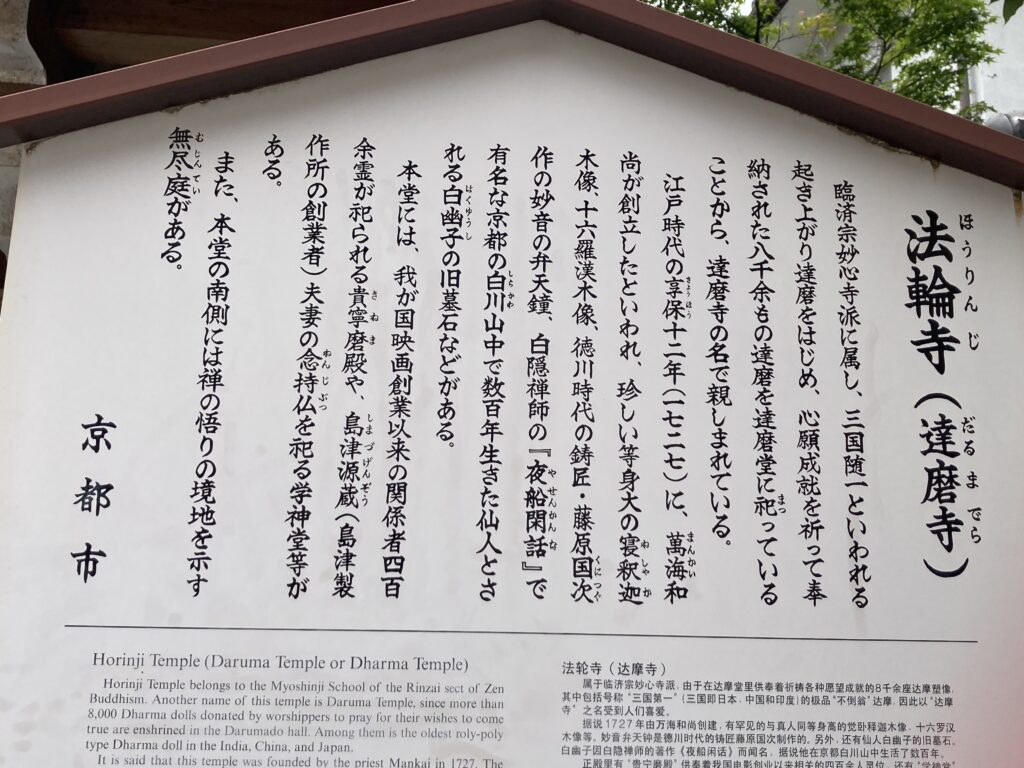 法輪寺（達磨寺）
ほうりんじ だるまでら
臨済宗妙心寺派に属し、三国随一といわれる
起き上がり達磨をはじめ、心願成就を祈って奉
納された八千余もの達磨を達磨堂に祀っている
まつ
ことから、達磨寺の名で親しまれている。
江戸時代の享保十二年（一七二七）に、萬海和
きょうほう まんかい
尚が創立したといわれ、珍しい等身大の寝釈迦
ねしゃか
木像、十六羅漢木像、徳川時代の鋳匠・藤原国次
くにつぐ
作の妙音の弁天鐘、白隠禅師の『夜船閑話』で
やせんかんな
有名な京都の白川山中で数百年生きた仙人とさ
しらかわ
れる白幽子の旧墓石などがある。
はくゆうし
本堂には、我が国映画創業以来の関係者四百
余霊が祀られる貴寧磨殿や、島津源蔵（島津製
きねま しまづげんぞう
作所の創業者）夫妻の念持仏を祀る学神堂等が
ねんじぶつ
ある。
また、本堂の南側には禅の悟りの境地を示す
無尽庭がある。
むじんてい
京都市
Horinji Temple (Daruma Temple or Dharma Temple)
Horinji Temple belongs to the Myoshinji School of the Rinzai sect of Zen
Buddhism. Another name of this temple is Daruma Temple, since more than
8,000 Dharma dolls donated by worshippers to pray for their wishes to come
true are enshrined in the Darumado hall. Among them is the oldest roly-poly
type Dharma doll in the India, China, and Japan.
It is said that this temple was founded by the priest Mankai in 1727. The
法轮寺（达摩寺）
属于临济宗妙心寺派，由于在达摩堂里供奉着祈祷各种愿望成就的8千余座达摩塑像，
其中包括号称“三国第一”（三国即日本、中国和印度）的极品“不倒翁”达摩，因此以“达摩
寺”之名受到人们喜爱。
据说1727年由万海和尚创建，有罕见的与真人同等身高的觉卧释迦木像，十六罗汉
木像等。妙音弁天钟是德川时代的铸匠藤原国次制作的。另外，还有仙人白幽子的旧墓石。
白幽子因白隐禅师的著作《夜船闲话》而闻名，据说他在京都白川山中生活了数百年。
正殿里有“贵宁磨殿”供奉着我国电影创业以来相关的四百余人灵位，还有“学神堂”